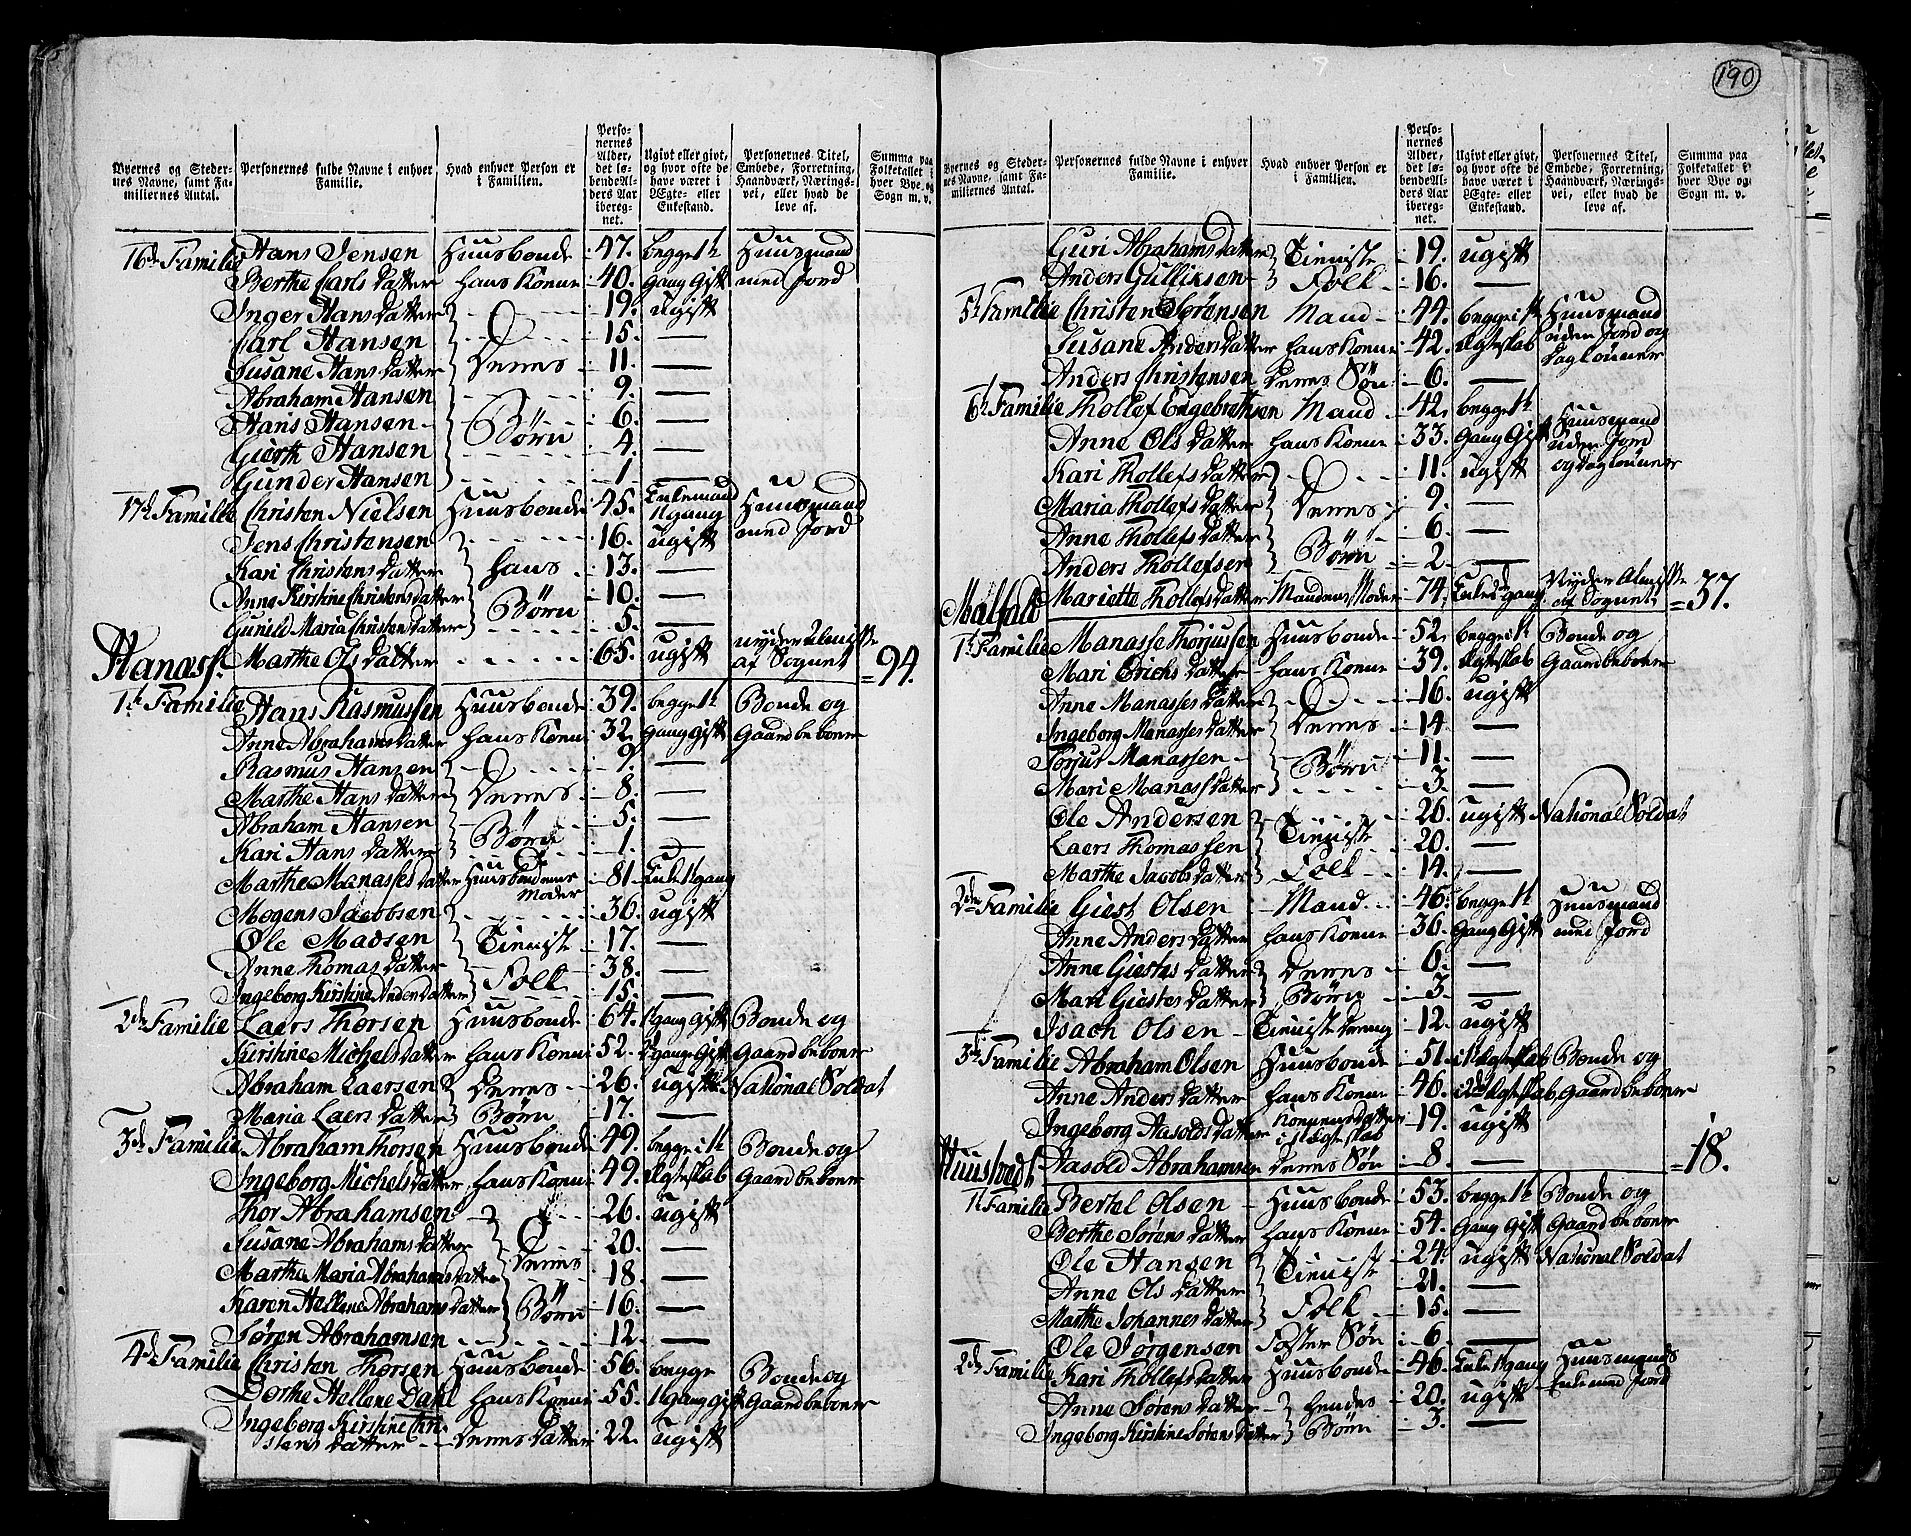 190
Byernes og Stedernes Navne, samt Familiernes Antal. Personernes fulde Navne i enhver Familie. Hvad enhver Person er i Familien. Personernes Alder, det løbende Alders Aar iberegnet. Ugivt eller givt, og hvor ofte de have været i Ægte- eller Enkestand. Personernes Titel, Embede, Forretning, Haandværk, Næringsvei, eller hvad de leve af. Summa paa Folketallet i hver Bye og Sogn m. v.
16de Familie Hans Jensen Huusbonde 47. begge 1te Huusmand
Berthe Carls datter hans Kone 40. Gang Gift med Jord
Inger Hans datter 19. ugift
Carl Hansen 15. —
Susane Hans datter Deres 11. —
Abraham Hansen 9. —
Hans Hansen Børn 6. —
Gierth Hansen 4. —
Gunder Hansen 1. —
17de Familie Christen Nielsen Huusbonde 45. Enkemand 1t gang Huusmand
Jens Christensen 16. ugift med Jord
Kari Christens datter hans 13. —
Anne Kirstine Christens datter Børn 10. —
Gunild Maria Christen datter 5. —
Marthe Ols datter 65. ugift nyder Almisse af Sognet =94.
Hanass.
1te Familie Hans Rasmussen Huusbonde 39. begge 1te Bonde og
Anne Abrahams datter hans Kone 32. Gang Gift Gaardbeboer
Rasmus Hansen 9. —
Marthe Hans datter Deres 8. —
Abraham Hansen 5. —
Kari Hans datter Børn 1. —
Marthe Manasses datter Huusbondens Moder 81. Enke 1t gang
Mogens Jacobsen 36. ugift
Ole Madsen Tieniste 17. —
Anne Thomas datter Folk 38. —
Ingeborg Kirstine Anders datter 15. —
2den Familie Laers Thorsen Huusbonde 64. 1t Gang Gift Bonde og
Kirstine Michels datter hans Kone 52. gange Gift Gaardbeboer
Abraham Laersen Deres 26. ugift National Soldat
Maria Laers datter Børn 17. —
3de Familie Abraham Thorsen Huusbonde 49. begge i 1te Bonde og
Ingeborg Michels datter hans Kone 49. Ægteskab Gaardbeboer
Thor Abrahamsen 26. ugift
Susane Abrahams datter 20. —
Marthe Maria Abrahams datter Deres 18. —
Karen Hellene Abrahams datter Børn 16. —
Søren Abrahamsen 12. —
4de Familie Christen Thorsen Huusbonde 56. begge Bonde og
Dorthe Hellene Dahl hans Kone 55. 1t Gang Gift Gaardbeboer
Ingeborg Kirstine Christens datter Deres datter 22. ugift
Byernes og Stedernes Navne, samt Familiernes Antal. Personernes fulde Navne i enhver Familie. Hvad enhver Person er i Familien. Personernes Alder, det løbende Alders Aar iberegnet. Ugivt eller givt, og hvor ofte de have været i Ægte- eller Enkestand. Personernes Titel, Embede, Forretning, Haandværk, Næringsvei, eller hvad de leve af. Summa paa Folketallet i hver Bye og Sogn m. v.
Guri Abrahams datter Tieniste 19. ugift
Anders Gulliksen Folk 16. —
5te Familie Christen Sørensen Mand 44. begge i 1te Huusmand
Susane Anders datter hans Kone 42. Ægteskab uden Jord og
Anders Christensen Deres Søn 6. — Daglønner
6te Familie Thollef Engebrethsen Mand 42. begge 1te Huusmand
Anne Ols datter hans Kone 33. Gang Gift uden Jord
Kari Thollefs datter 11. ugift og daglønner
Maria Thollefs datter Deres 9. —
Anne Thollefs datter 6. —
Anders Thollefsen Børn 2. —
Mariette Thollefs datter Mandens Moder 74. Enke gang Nyder Almisse af Sognet =37.
Malfald
1te Familie Manasse Thorjussen Huusbonde 52. begge i 1te Bonde og
Mari Erichs datter hans Kone 39. Ægteskab Gaardbeboer
Anne Manasses datter 16. ugift
Ingeborg Manasses datter Deres 14 —
Torjus Manassen 11. —
Mari Manass datter Børn 3. —
Ole Andersen 26. ugift National Soldat
Laers Thomassen Tieniste 20. —
Marthe Jacobs datter Folk 14. —
2den Familie Giest Olsen Mand 46. begge 1te Huusmand
Anne Anders datter hans Kone 36. Gang Gift med Jord
Anne Giestes datter Deres 6. —
Mari Giestes datter Børn 3. —
Isach Olsen Tieniste dreng 12. ugift
3de Familie Abraham Olsen Huusbonde 51. i 1te Ægteskab Bonde og
Anne Anders datter hans Kone 46. i 2det Ægteskab Gaardbeboer
Ingeborg Aasolds datter Konens datter i 1st Ægteskab 19. ugift
Aasold Abrahamsen Deres Søn 8. — =18.
1te Familie Bertel Olsen Huusbonde 53. begge 1te Bonde og
Berthe Sørens datter hans Kone 54. Gang Gift Gaardbeboer
Ole Hansen 24. ugift National Soldat
Anne Ols datter Tieniste 21. —
Marthe Johannes datter Folk 15. —
Ole Jørgensen Foster Søn 6. —
2den Familie Kari Thollefs datter Huusbonde 46. Enke 1t gang Huusmands
Anne Sørens datter hendes 20. ugift Enke med Jord
Ingeborg Kirstine Sørens datter Børn 3. —